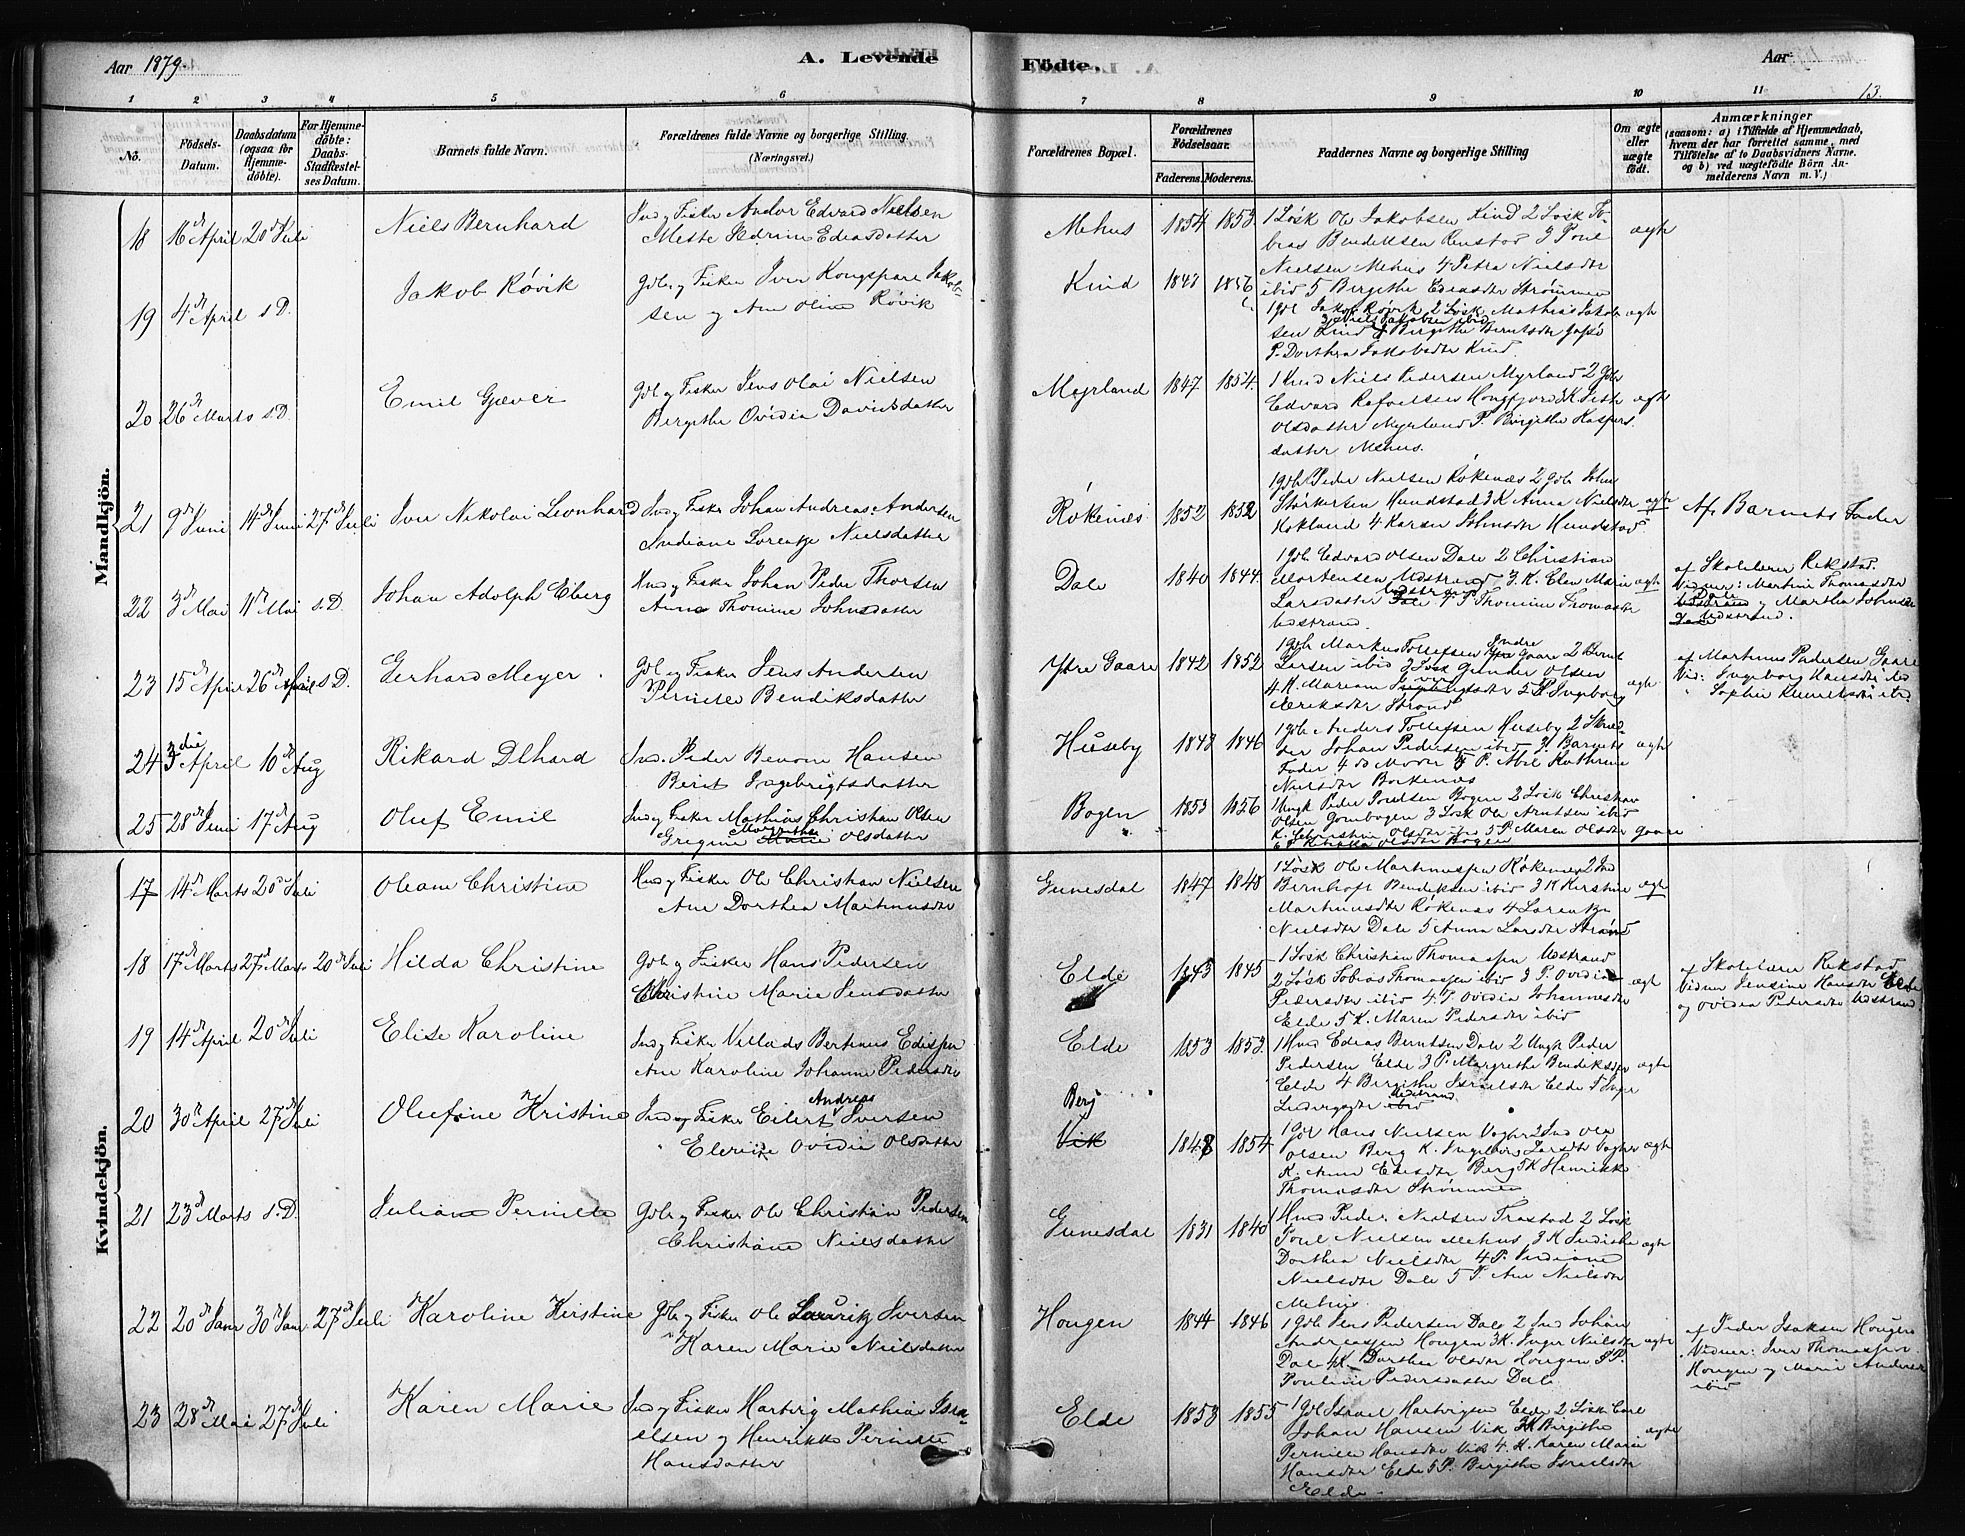 Aar 1879.
A. Levende Födte.
Aar
13.
1 2 3 4 5 6 7 8 9 10 11
No.
Fødsels-Datum.
Daabsdatum (ogsaa for Hjemme-döbte).
For Hjemme-döbte: Daabs-Stadfæstel-ses Datum.
Barnets fulde Navn.
Forældrenes fulde Navne og borgerlige Stilling. (Næringsvei.)
Forældrenes Bopæl.
Forældrenes Födselsaar.
Faderens. Moderens.
Faddernes Navne og borgerlige Stilling
Om ægte eller uægte födt.
Anmærkninger
(saasom: a) i Tilfælde af Hjemmedaab, hvem der har forrettet samme, med Tilföielse af to Daabsvidners Navne. og b) ved uægtefödte Börn An-melderens Navn m. V.)
Mandkjön.
18 16de April 20de Juli Niels Bernhard
Ind og Fisker Andor Edvard Nielsen
Mette Hedrine Edeasdatter
Mehus 1854 1853 ægte
1 Løsk Ole Jakobsen Kind 2 Løsk To-
bias Bendiktsen 3 Poul
Nielsen Mehus 4 Petra Nielsdtr
ibid 5 Bergithe Edeasdtr Strømmen
19 4de April s.D. Jakob Røvik
Gdbr og Fisker Iver Kongspare Jakob-
sen og Ane Oline Røvik
Kind 1843 1856 ægte
1 Gdb Jakob Røvik 2 Løsk Mathias Jakob-
3 Niels Jakobsen ibid
sen Kind Bergithe Berntsdtr
P. Dorthea Jakobsdtr Kind.
20 26de Marts s.D. Emil Gjæver
Gdb og Fisker Jens Olai Nielsen
Bergithe Ovidia Davidsdatter
Myrland 1847 1854 ægte
1 Niels Pedersen Myrland 2 Gdb
Edvard Rafaelsen
Olsdatter Myrland P. Birgithe Kaspers
datter Mehus.
21 9de Juni 14de Juni 27de Juli Iver Nikolai Leonhard
Ind og Fisker Johan Andreas Andersen
Andiane Lorentze Nielsdatter
Røkenæs 1852 1852 ægte
1 Gdb Peder Nielsen Røkenæs 2 Gdb John
Størkersen Hundstad 3 K Anna Nielsdtr
4 Karen Johnsdtr Hundstad
Af Barnets Fader
22 3de Mai 11de Mai s.D. Johan Adolph Eberg
Hmd og Fisker Johan Peder Thorsen
Anne Thomine Johnsdatter
Dale 1840 1844 ægte
1 Gdb Edvard Olsen Dale 2 Christian
Mortensen Udstrand 3 K. Elen Marie
Udstrand
Larsdatter Dale 4 P Thomine Thomasdtr
Udstrand.
af Skolelærer Rekstad
Vidner: Martine Thomasdtr
Dale
Udstrand og Martha Johnsdtr
Dale Udstrand.
23 15de April 26de April s.D. Gerhard Meyer
Gdb og Fisker Jens Andersen
Pernille Bendiksdatter
Ytre Gaare 1842 1852 ægte
Indre
1 Gdb Markus Tollefsen Ytre Gaare 2 Bernt
Larsen ibid 3 Løsk Gunder Olsen
4 K. Mariane 5 P Ingeborg
Eriksdtr Strand
af Martinus Pedersen Gaare
Vid: Ingeborg Hansdtr ibid
Sophie ibid
24 3die April 10de Aug Rikard Dlhard
Ind. Peder Benoni Hansen
Berit Ingebrigtsdatter
Huseby 1843 1846 ægte
1 Gdb Anders Tollefsen Huseby 2 Skræd-
der Johan Pedersen ibid 3 Barnets
Fader 4 do Moder 5 P. Abel Kathrine
Nielsdtr Borkenæs
25 28de Juni 17de Aug Oluf Emil
Ind og Fisker Mathias Christian Olsen
Margrethe
Gregine Marie Olsdatter
Bogen 1853 1856
1 Ungk Peder Poulsen Bogen 2 Løsk Christian
Olsen 3 Løsk Ole Arntsen ibid
K. Christine Olsdtr ibid 5 P Maren Olsdtr Gaare
Olsdtr Bogen
Kvindekjön.
17 14de Marts 20de Juli Oleane Christine
Hmd og Fisker Ole Christian Nielsen
Ane Dorthea Martinusdtr
Gunesdal 1847 1848 ægte
1 Løsk Ole Martinussen Røkenæs 2 Ind
Bernhoft Bendiksen ibid 3 K Kirstine
Martinusdtr Røkenæs 4 Lorentze
Nielsdtr Dale 5 Anna Larsdtr Strand
18 17de Marts 27de Marts 20de Juli Hilda Christine
Gdb og Fisker Hans Pedersen
Christine Marie Jensdatter
Elde 1845 1845 ægte
1 Løsk Christian Thomassen Udstrand
2 Løsk Tobias Thomassen ibid 3 P. Ovidia
Pedersdtr ibid 4 P Ovidia Johannesdtr
Elde 5 K. Maren Pedersdtr ibid
af Skolelærer Rekstad
Vidner Jensine Hansdtr Elde
og Ovidia Pedersdtr Udstrand
19 14de April 20de Juli Elise Karoline
Ind og Fisker Villads Bertinus
Ane Karoline Johanne Pedersdtr
Elde 1853 1853 ægte
1 Hmd Edeas Berntsen Dale 2 Ungk Peder
Pedersen Elde 3 P. Margrethe Bendiksen
Elde 4 Bergithe Israelsdtr Elde 5 Inger
Udstrand
ibid
20 30te April 27de Juli Olufine Kristine
Andreas
Ind og Fisker Eilert Iversen
Ovidie Olsdatter
Berg
Vik 1848 1854 ægte
1 Gdb Hans Nielsen 2 Ind Ole
Olsen Berg K. Larsdtr
K. Anne Edisdtr Berg 5 K Henrikke
Thomasdtr Strømmen
21 23de Marts s.D. Juliane Pernille
Gdbr og Fisker Ole Christian Pedersen
Christiane Nielsdatter
Gunesdal 1831 1840 ægte
1 Hmd Peder Nielsen Trastad 2 Løsk
Poul Nielsen Mehus 3 K
Dorthea Nielsdtr 4 P.
Nielsdtr Dale 5 P. Ane Nielsdtr
Mehus
22 20de Janr 30te Janr 27de Juli Karoline Kristine
Gdb og Fisker Ole Lauritz Iversen
Karen Marie Nielsdatter
Hougen 1844 1846 ægte
1 Gdb Jens Pedersen Dale 2 Ind Johan
Andreassen Hougen 3 K. Inger Nielsdtr
Dale 4 K Dorthea Olsdtr Hougen 5 P.
Pouline Pedersdatter Dale
af Peder Isaksen Hougen
Vidner: Iver Thomassen
Hougen og Marie Andersd
ibid
23 28de Mai 27de Juli Karen Marie
Ind og Fisker Hartvig Mathias Isra-
elsen og Henrikke Pernille
Hansdatter
Elde 1853 1855 ægte
1 Gdb Israel Hartvigsen Elde 2 Løsk Carl
Johan Hansen Vik 3 K Birgithe
Pernille Hansdtr Vik 4 K. Karen Marie
Hansdtr Elde 5 P. Bergithe Israelsdtr
Elde